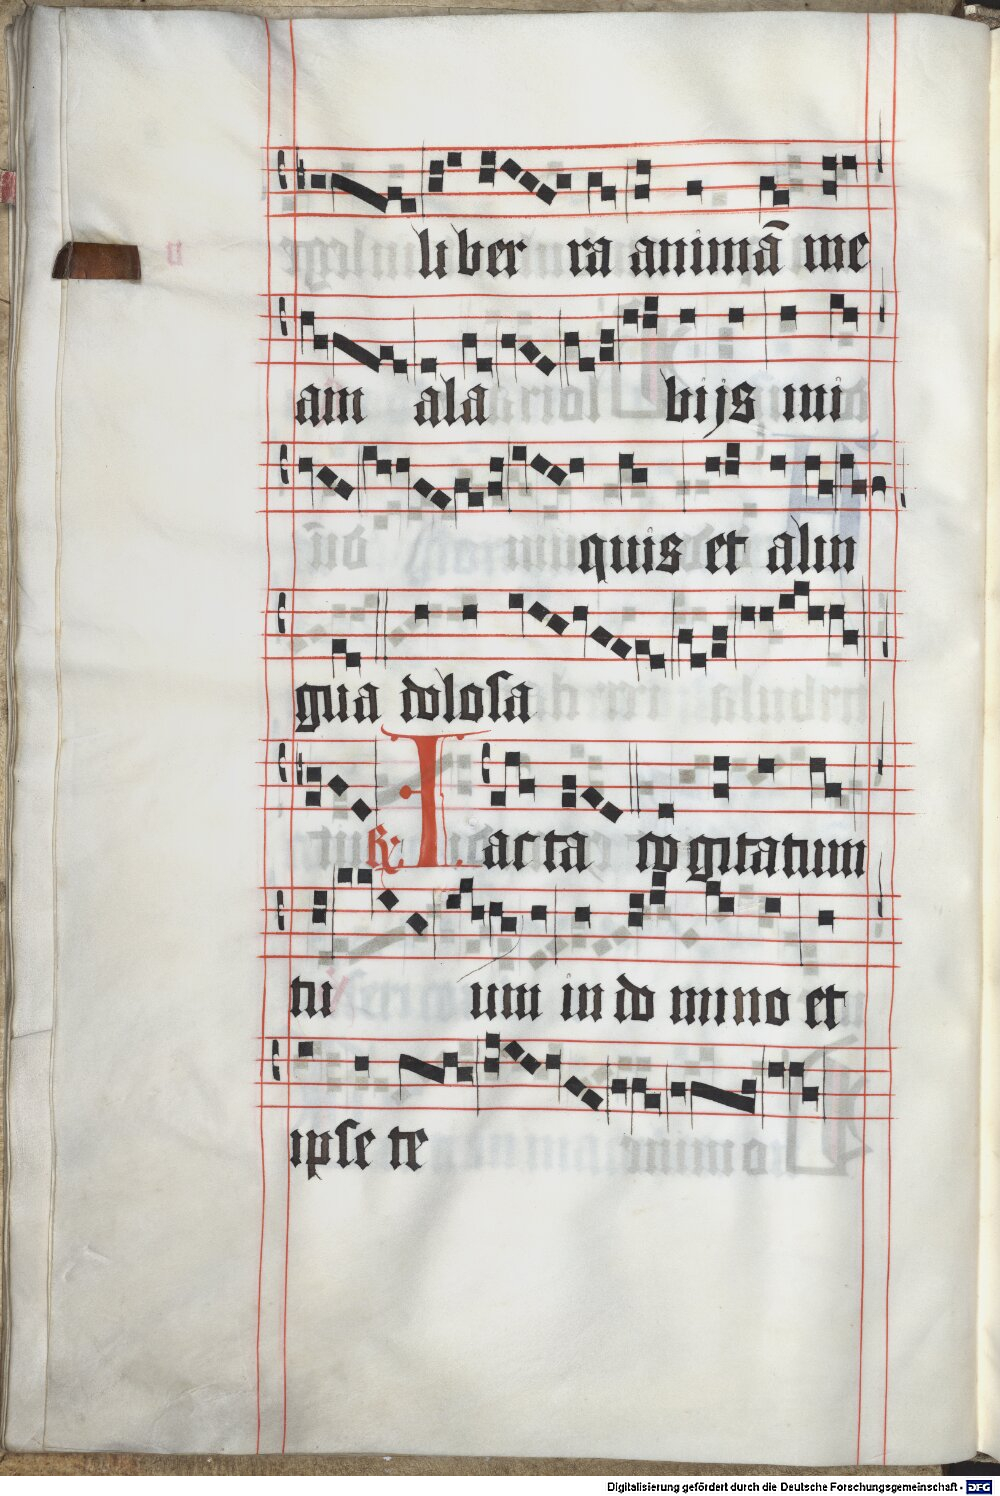 liber ra animā me
am a la bijs ini
quis et a lin
gua dolosa
℟. Iacta cogitatum
tu um in do mino et
ipse te
Digitalisierung gefördert durch die Deutsche Forschungsgemeinschaft - DFG